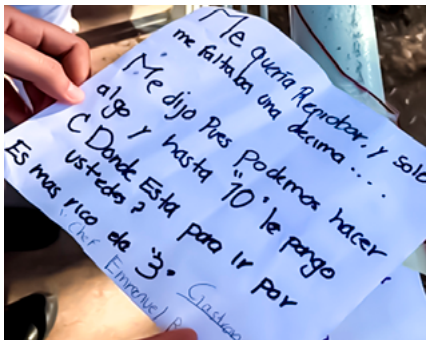 Me quería Reprobar, y solo
me faltaba una decima ....
Me dijo Pues Podemos hacer
algo y hasta "10" le pongo
¿Donde Está para ir por
ustedes?
Es mas rico da "3".
Chef Emmanuel